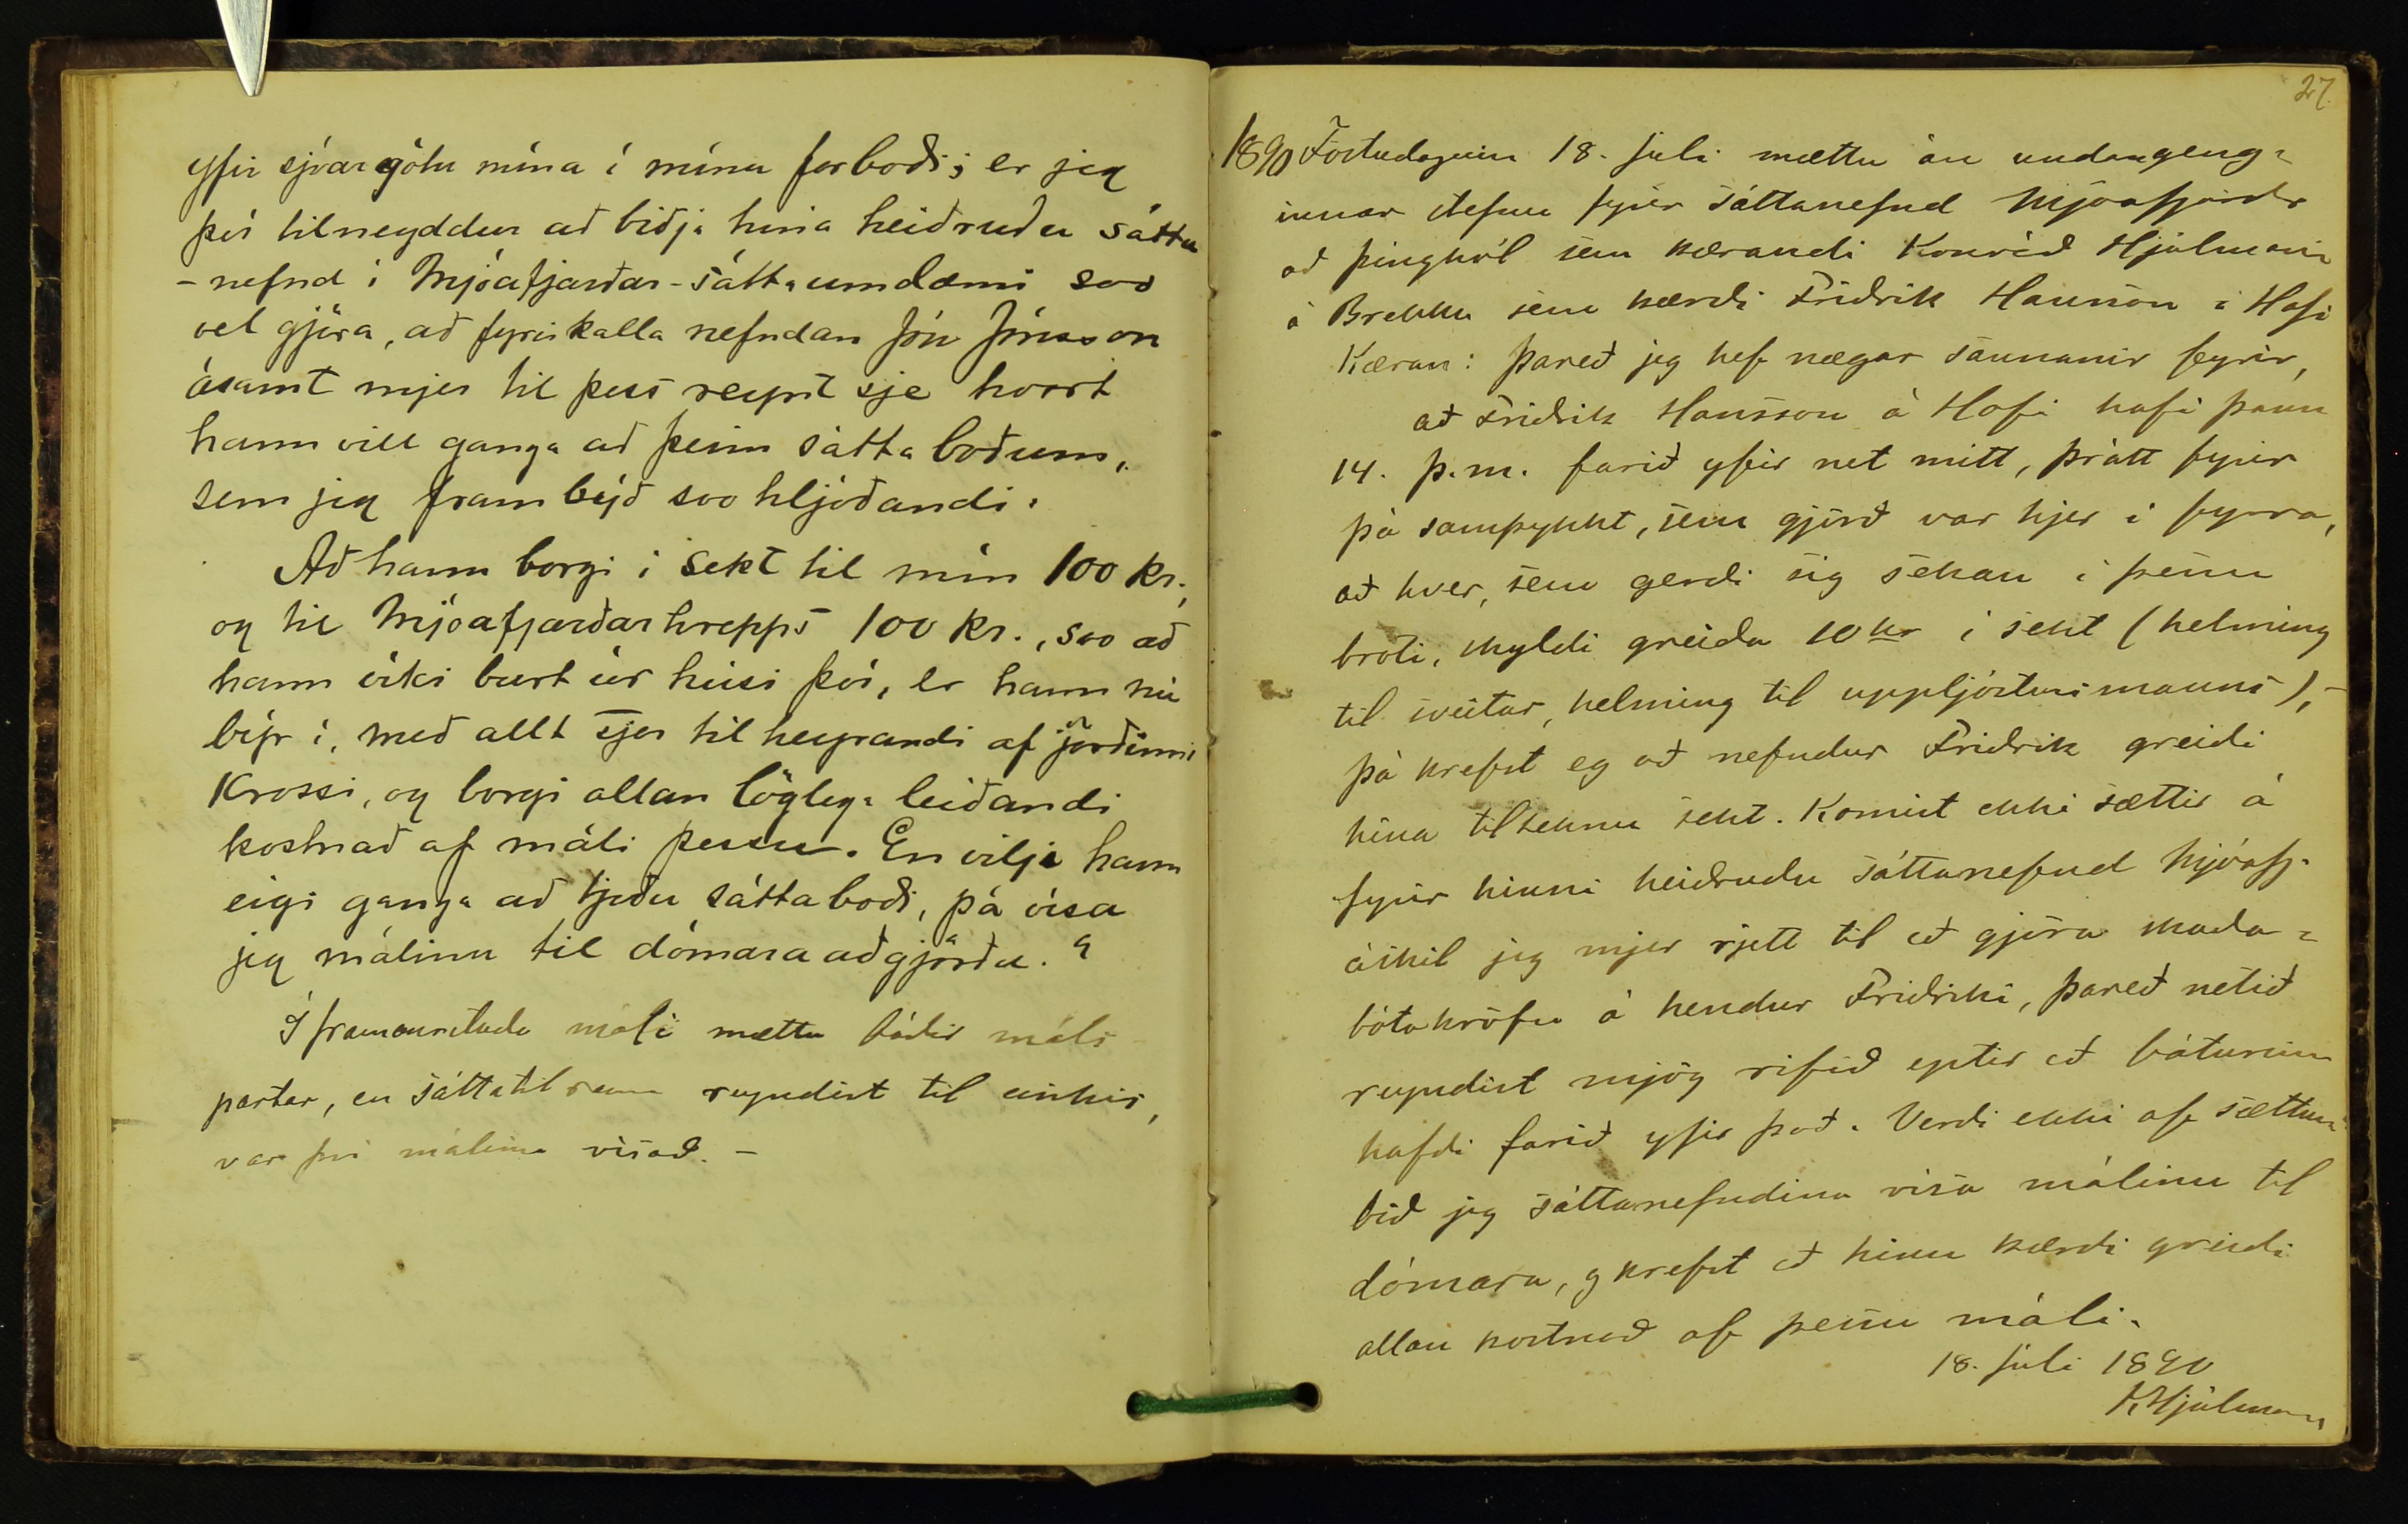 yfir sjóargötu mína í mínu forboði; er jeg
því tilneyddur að biðja hina heiðruðu sátta
- nefnd í Mjóafjarðar-sáttaumdæmi svo
vel gjöra, að fyrirkalla nefndan Jón Jónsson
ásamt mjer til þess reynt sje hvort
hann vill ganga að þeim sáttaboðum,
sem jeg frambýð svo hljóðandi:
Að hann borgi í sekt til mín 100 kr.,
og til Mjóafjarðarhrepps 100 kr., svo að
hann víki burt úr húsi því, er hann nú
býr í, með allt sjer tilheyrandi af jörðinni
Krossi, og borgi allan löglega leiðandi
kostnað af máli þessu. En vilji hann
eigi ganga að tjeðu sáttaboði, þá vísa
jeg málinu til dómara aðgjörðu."
Í framanrituðu máli mættu báðir máls-
partar, en sáttatilraun reyndist til einkis,
var því málinu vísað. -
27.
1890 Föstudaginn 18. júli mættu án undangeng=
innar stefnu fyrir sáttanefnd Mjóafjarðar
að þinghól sem kærandi Konráð Hjálmarss
á Brekku sem kærði Friðrik Hansson á Hofi
Kæran: Þareð jeg hef nægar sannanir fyrir,
að Friðrik Hansson á Hofi hafi þann
14. þ.m. farið yfir net mitt, þrátt fyrir
þá samþykkt, sem gjörð var hjer í fyrra,
að hver, sem gerði sig sekan í þessu
broti, skyldi greiða 10 kr í sekt (helming
til sveitar, helming til uppljósturs manns), -
þá krefst eg að nefndur Friðrik greiði
hina tilteknu sekt. Komist ekki sættir á
fyrir hinni heiðruðu sáttanefnd Mjóafj.
áskil jeg mjer rjett til að gjöra skaða=
bótakröfu á hendur Friðriki, þareð netið
reyndist mjög rifið eptir að báturinn
hafði farið yfir það. Verði ekki af sættum
bið jeg sáttanefndina vísa málinu til
dómara, og krefst að hinn kærði greiði
allan kostnað af þessu máli.
18. júli 1890
KHjálmarss